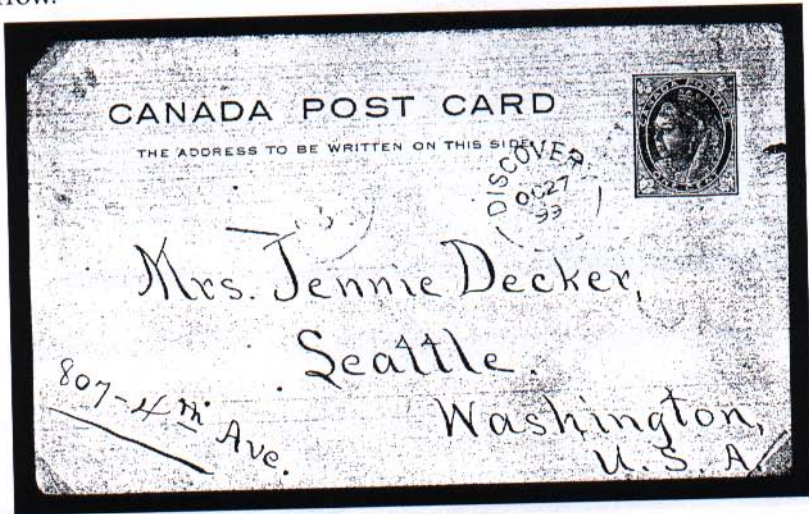 CANADA POST CARD
THE ADDRESS TO BE WRITTEN ON THIS SIDE
DISCOVERY
OC 27
99
Mrs. Jennie Decker,
Seattle.
807-4th Ave.
Washington,
U.S.A.